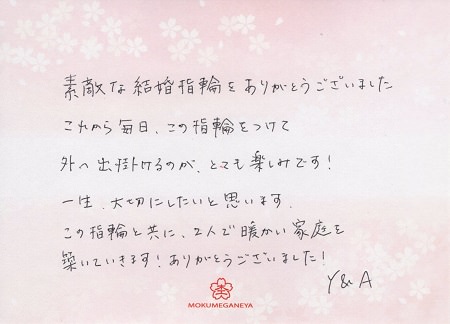 素敵な結婚指輪をありがとうございました
これから毎日、この指輪をつけて
外へ出掛けるのが、とても楽しみです！
一生、大切にしたいと思います。
この指輪と共に、2人で暖かい家庭を
築いていきます！ありがとうございました！
Y&A
MOKUMEGANEYA